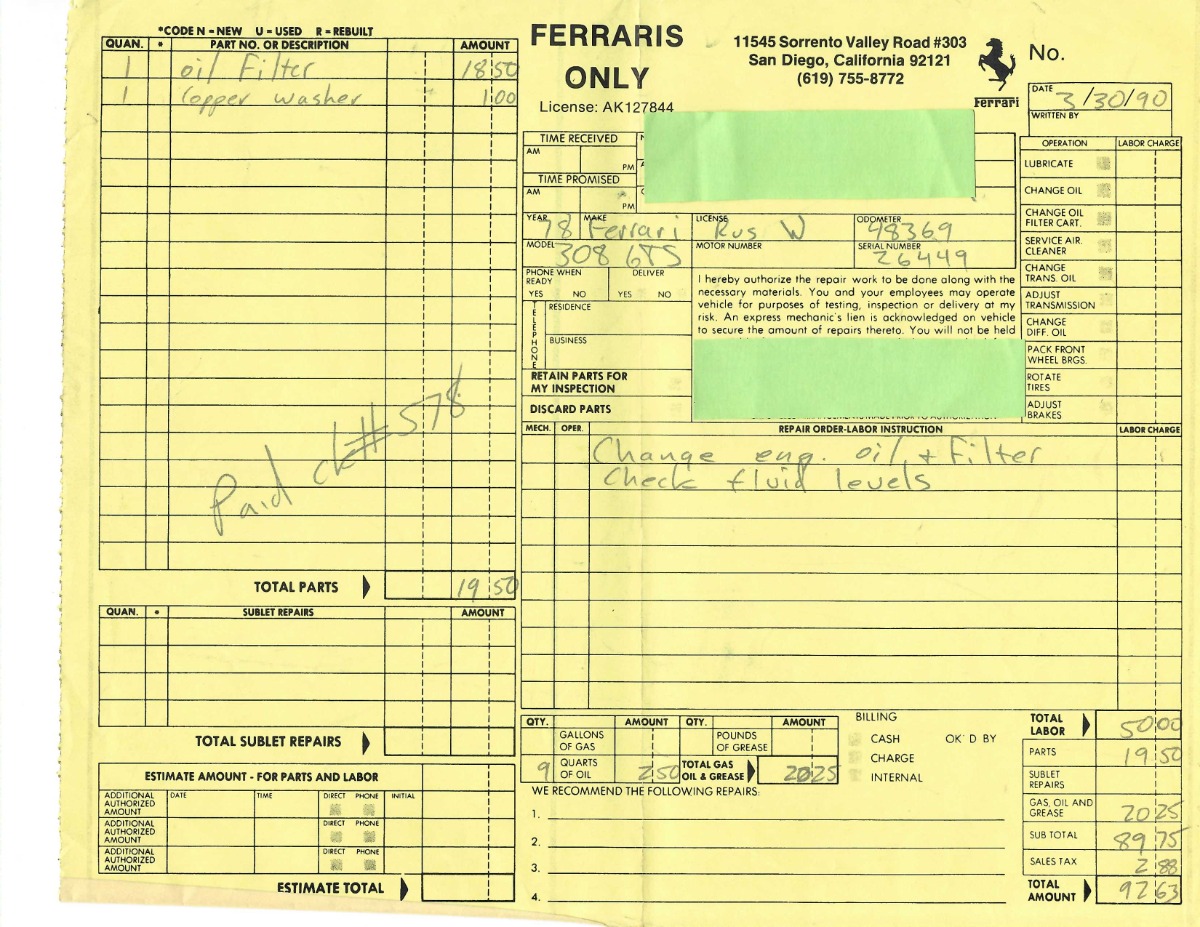 *CODE N = NEW U = USED R = REBUILT
QUAN. * PART NO. OR DESCRIPTION AMOUNT
1 oil Filter 18 50
1 Copper washer 1 00
Paid ck# 578
TOTAL PARTS 19 50
QUAN. * SUBLET REPAIRS AMOUNT
TOTAL SUBLET REPAIRS
ESTIMATE AMOUNT - FOR PARTS AND LABOR
ADDITIONAL AUTHORIZED AMOUNT DATE TIME DIRECT PHONE INITIAL
ADDITIONAL AUTHORIZED AMOUNT DIRECT PHONE
ADDITIONAL AUTHORIZED AMOUNT DIRECT PHONE
ESTIMATE TOTAL
FERRARIS
ONLY
License: AK127844
11545 Sorrento Valley Road #303
San Diego, California 92121
(619) 755-8772
Ferrari
No.
DATE 3/30/90
WRITTEN BY
TIME RECEIVED
AM PM
TIME PROMISED
AM PM
YEAR 78 MAKE Ferrari LICENSE Rus W ODOMETER 48369
MODEL 308 GTS MOTOR NUMBER SERIAL NUMBER 26449
PHONE WHEN READY DELIVER
YES NO YES NO
TELEPHONE
RESIDENCE
BUSINESS
RETAIN PARTS FOR
MY INSPECTION
DISCARD PARTS
I hereby authorize the repair work to be done along with the
necessary materials. You and your employees may operate
vehicle for purposes of testing, inspection or delivery at my
risk. An express mechanic's lien is acknowledged on vehicle
to secure the amount of repairs thereto. You will not be held
OPERATION LABOR CHARGE
LUBRICATE
CHANGE OIL
CHANGE OIL FILTER CART.
SERVICE AIR. CLEANER
CHANGE TRANS. OIL
ADJUST TRANSMISSION
CHANGE DIFF. OIL
PACK FRONT WHEEL BRGS.
ROTATE TIRES
ADJUST BRAKES
MECH. OPER. REPAIR ORDER-LABOR INSTRUCTION LABOR CHARGE
Change eng. oil + Filter
Check fluid levels
QTY. AMOUNT QTY. AMOUNT
GALLONS OF GAS POUNDS OF GREASE
9 QUARTS OF OIL 2 50 TOTAL GAS OIL & GREASE 20 25
BILLING
CASH OK'D BY
CHARGE
INTERNAL
WE RECOMMEND THE FOLLOWING REPAIRS:
1.
2.
3.
4.
TOTAL LABOR 50 00
PARTS 19 50
SUBLET REPAIRS
GAS, OIL AND GREASE 20 25
SUB TOTAL 89 75
SALES TAX 2 88
TOTAL AMOUNT 92 63